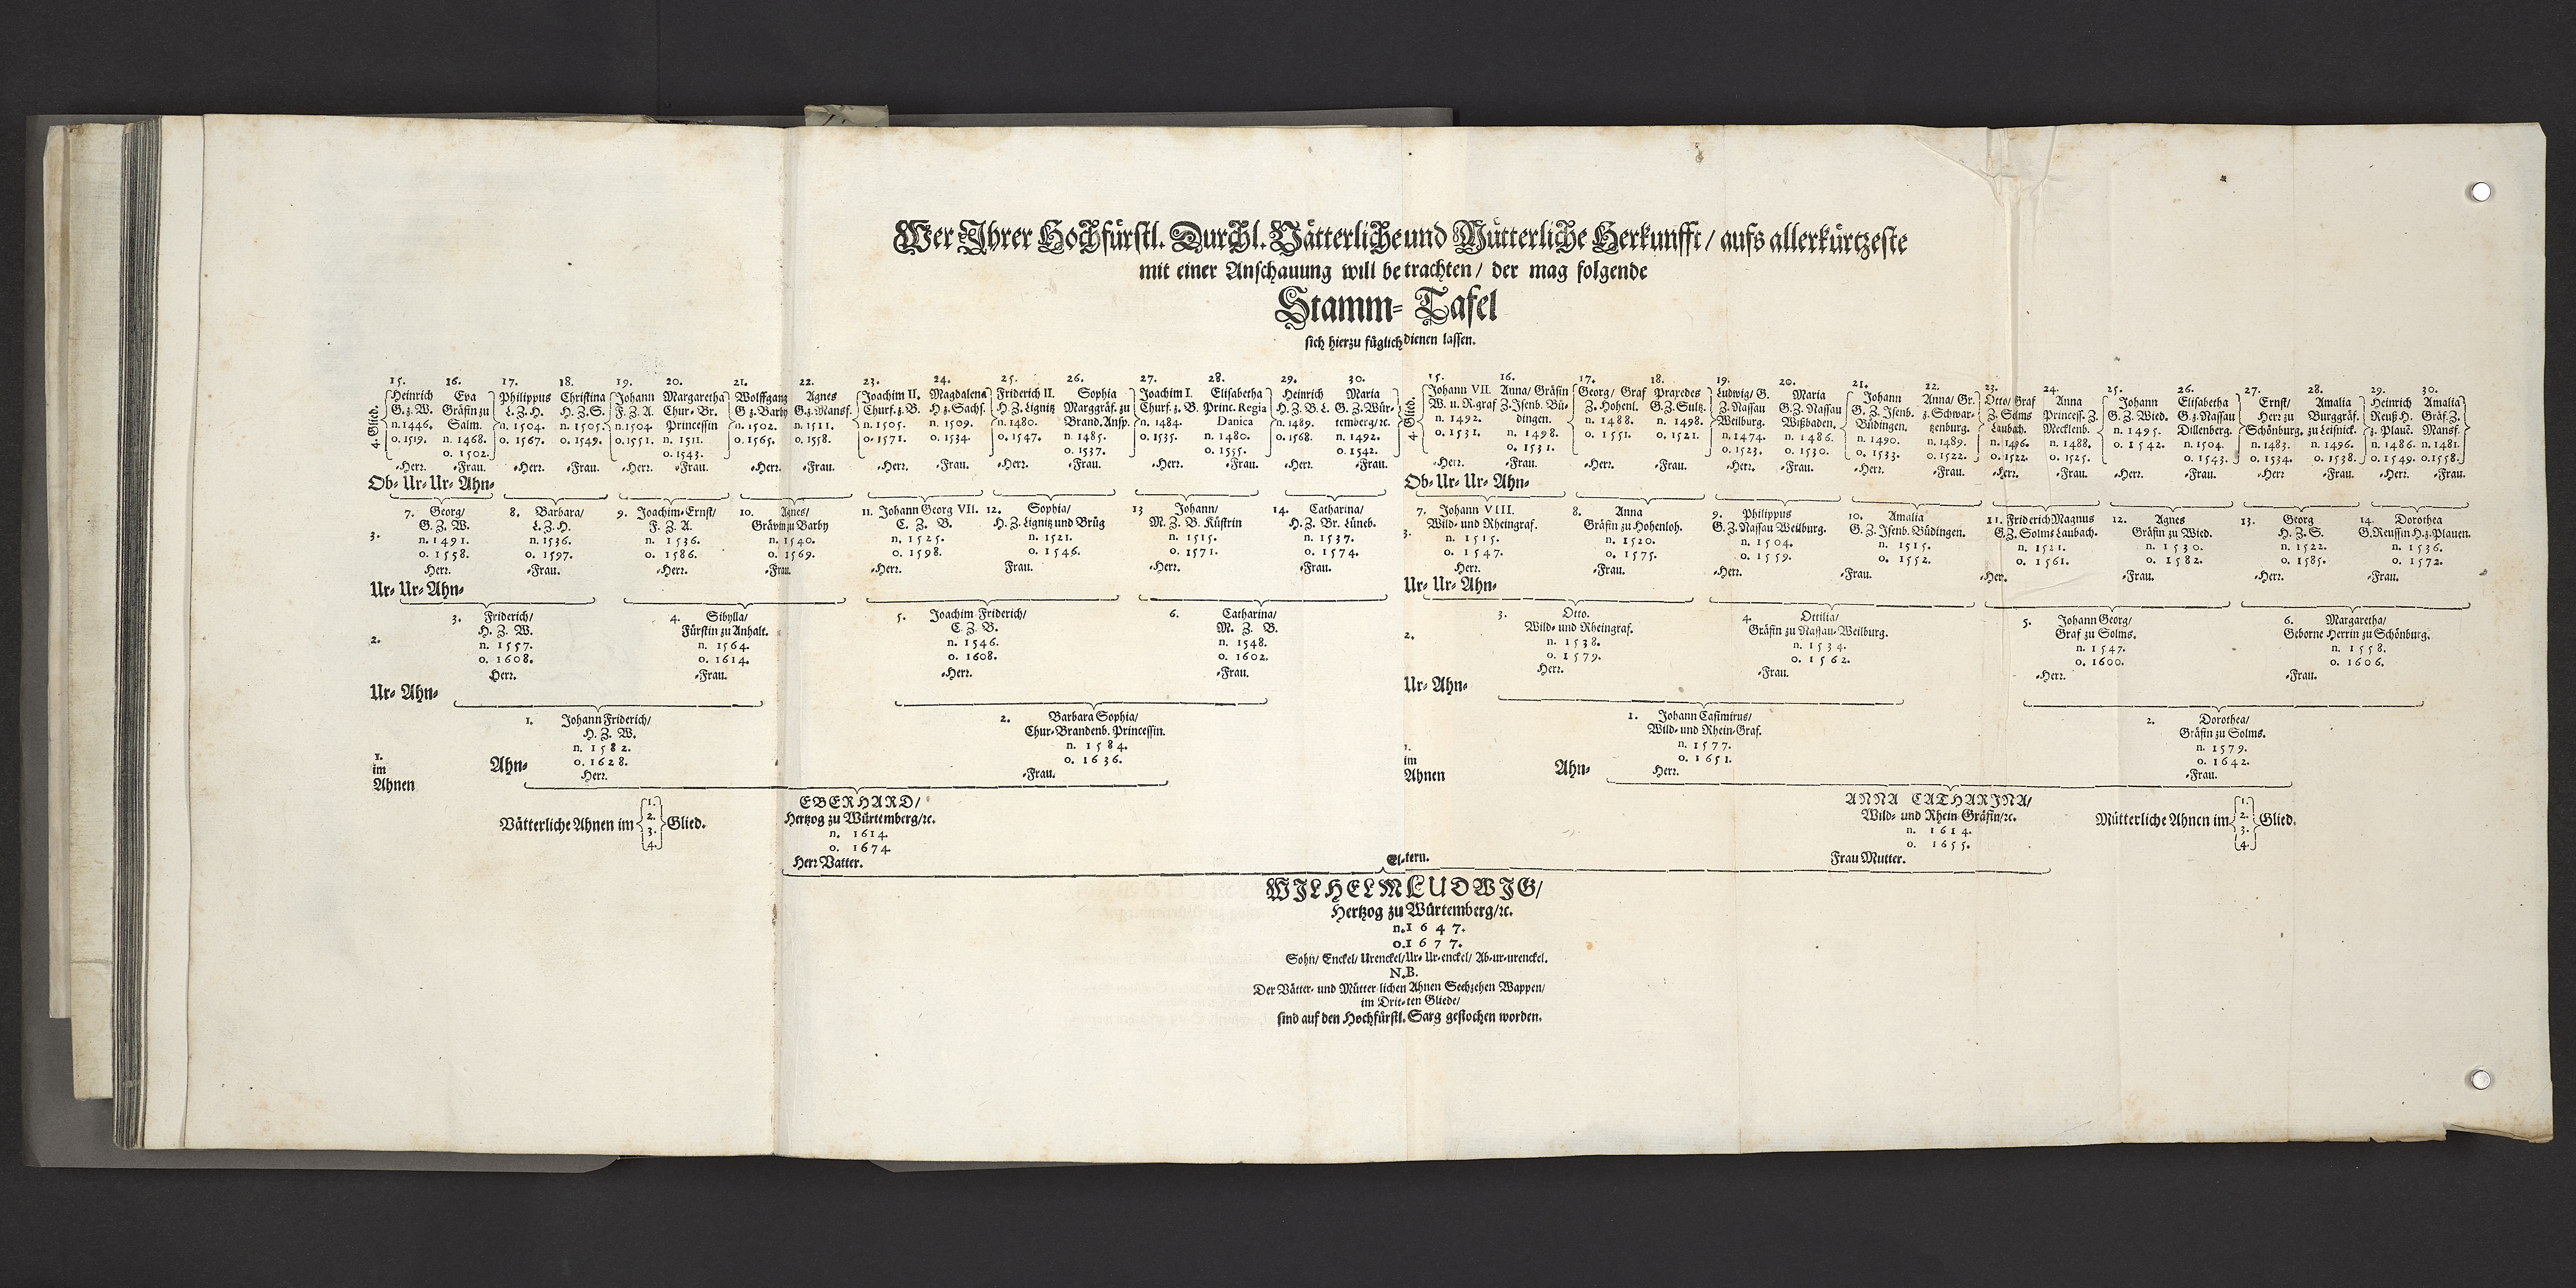 Wer Ihrer Hochfürstl. Durchl. Vätterliche und Mütterliche Herkunfft/ aufs allerkürtzeste
mit einer Anschauung will betrachten/ der mag folgende
Stamm-Tafel
sich hierzu füglich dienen lassen.
4. Glied.
15. Heinrich
G. z. W.
n. 1446.
o. 1519.
-Herr.
16. Eva
Gräfin zu
Salm.
n. 1468.
o. 1502.
-Frau.
17. Philippus
L. Z. H.
n. 1504.
o. 1567.
-Herr.
18. Christina
H. Z. S.
n. 1505.
o. 1549.
-Frau.
19. Johann
F. Z. A.
n. 1504
o. 1551.
-Herr.
20. Margaretha
Chur-Br.
Princessin
n. 1511.
o. 1543.
-Frau.
21. Wolffgang
G z. Barby
n. 1502.
o. 1565.
-Herr.
22. Agnes
G. z. Mansf.
n. 1511.
o. 1558.
-Frau.
23. Joachim II.
Churf. z. B.
n. 1505.
o. 1571.
-Herr.
24. Magdalena
H z. Sachs.
n. 1509.
o. 1534.
-Frau.
25. Friderich II.
H. Z. Lignitz
n. 1480.
o. 1547.
-Herr.
26. Sophia
Marggräf. zu
Brand. Ansp.
n. 1485.
o. 1537.
-Frau.
27. Joachim I.
Churf. z. B.
n. 1484.
o. 1535.
-Herr.
28. Elisabetha
Princ. Regia
Danica
n. 1480.
o. 1555.
-Frau.
29. Heinrich
H. Z. B. L.
n. 1489.
o. 1568.
-Herr.
30. Maria
G. Z. Wür-
temberg/ ꝛc.
n. 1492.
o. 1542.
-Frau.
4. Glied.
15. Johann VII.
W. u. R. graf
n. 1492.
o. 1531.
-Herr.
16. Anna/ Gräfin
Z. Isenb. Bü-
dingen.
n. 1498.
o. 1531.
-Frau.
17. Georg/ Graf
Z. Hohenl.
n. 1488.
o. 1551.
-Herr.
18. Praxedes
G. Z. Sultz.
n. 1498.
o. 1521.
-Frau.
19. Ludwig/ G.
Z. Nassau
Weilburg.
n. 1474.
o. 1523.
-Herr.
20. Maria
G. Z. Nassau
Wißbaden.
n. 1486.
o. 1530.
-Frau.
21. Johann
G. Z. Isenb.
Büdingen.
n. 1490.
o. 1533.
-Herr.
22. Anna/ Gr.
z. Schwar-
tzenburg.
n. 1489.
o. 1522.
-Frau.
23. Otto/ Graf
Z. Solms
Laubach.
n. 1496.
o. 1522.
-Herr.
24. Anna
Princess. Z.
Mecklenb.
n. 1488.
o. 1525.
-Frau.
25. Johann
G. Z. Wied.
n. 1495.
o. 1542.
-Herr.
26. Elisabetha
G. z. Nassau
Dillenberg.
n. 1504.
o. 1543.
-Frau.
27. Ernst/
Herr zu
Schönburg.
n. 1483.
o. 1534.
-Herr
28. Amalia
Burggräf.
zu Leißnick.
n. 1496.
o. 1538.
-Frau.
29. Heinrich
Reuß H.
z. Plaue.
n. 1486.
o. 1549.
-Herr.
30. Amalia
Gräf. Z.
Mansf.
n. 1481.
o. 1558.
-Frau.
Ob-Ur-Ur-Ahn-
Ob-Ur-Ur-Ahn-
3.
7. Georg/
G. Z. W.
n. 1491.
o. 1558.
Herr.
8. Barbara/
L. Z. H.
n. 1536.
o. 1597.
-Frau.
9. Joachim-Ernst/
F. Z. A.
n. 1536.
o. 1586.
-Herr.
10. Agnes/
Grävin zu Barby
n. 1540.
o. 1569.
-Frau.
11. Johann Georg VII.
C. Z. B.
n. 1525.
o. 1598.
-Herr.
12. Sophia/
H. Z. Lignitz und Brüg
n. 1521.
o. 1546.
Frau.
13 Johann/
M. Z. B. Küstrin
n. 1515.
o. 1571.
-Herr.
14. Catharina/
H. Z. Br. Lüneb.
n. 1537.
o. 1574.
-Frau.
3.
7. Johann VIII.
Wild- und Rheingraf.
n. 1515.
o. 1547.
Herr.
8. Anna
Gräfin zu Hohenloh.
n. 1520.
o. 1575.
-Frau.
9. Philippus
G. Z. Nassau Weilburg.
n. 1504.
o. 1559.
-Herr.
10. Amalia
G. Z. Isenb. Büdingen.
n. 1515.
o. 1552.
-Frau.
11. Friderich Magnus
G. Z. Solms Laubach.
n. 1521.
o. 1561.
-Herr.
12. Agnes
Gräfin zu Wied.
n. 1530.
o. 1582.
-Frau.
13. Georg
H. Z. S.
n. 1522.
o. 1585.
-Herr.
14. Dorothea
G. Reussin H. z. Plauen.
n. 1536.
o. 1572.
-Frau.
Ur-Ur-Ahn-
Ur-Ur-Ahn-
2.
3. Friderich/
H. Z. W.
n. 1557.
o. 1608.
Herr.
4. Sibylla/
Fürstin zu Anhalt.
n. 1564.
o. 1614.
-Frau.
5. Joachim Friderich/
C. Z. B.
n. 1546.
o. 1608.
-Herr.
6. Catharina/
M. Z. B.
n. 1548.
o. 1602.
-Frau.
2.
3. Otto.
Wild- und Rheingraf.
n. 1538.
o. 1579.
Herr.
4. Ottilia/
Gräfin zu Nassau-Weilburg.
n. 1534.
o. 1562.
-Frau.
5. Johann Georg/
Graf zu Solms.
n. 1547.
o. 1600.
-Herr.
6. Margaretha/
Geborne Herrin zu Schönburg.
n. 1558.
o. 1606.
-Frau.
Ur-Ahn-
Ur-Ahn-
1.
im
Ahnen
Ahn-
1. Johann Friderich/
H. Z. W.
n. 1582.
o. 1628.
Herr.
2. Barbara Sophia/
Chur-Brandenb. Princessin.
n. 1584.
o. 1636.
-Frau.
1.
im
Ahnen
Ahn-
1. Johann Casimirus/
Wild- und Rhein-Graf.
n. 1577.
o. 1651.
Herr.
2. Dorothea/
Gräfin zu Solms.
n. 1579.
o. 1642.
-Frau.
Vätterliche Ahnen im
1.
2.
3.
4.
Glied.
EBERHARD/
Hertzog zu Würtemberg/ ꝛc.
n. 1614.
o. 1674.
Herr Vatter.
El-tern.
ANNA CATHARINA/
Wild- und Rhein Gräfin/ ꝛc.
n. 1614.
o. 1655.
Frau Mutter.
Mütterliche Ahnen im
1.
2.
3.
4.
Glied.
WILHELM LUDWIG/
Hertzog zu Würtemberg/ ꝛc.
n. 1647.
o. 1677.
Sohn/ Enckel/ Urenckel/ Ur-Ur-enckel/ Ab-ur-urenckel.
N.B.
Der Vätter- und Mütterlichen Ahnen Sechzehen Wappen/
im Drit-ten Gliede/
sind auf den Hochfürstl. Sarg gestochen worden.